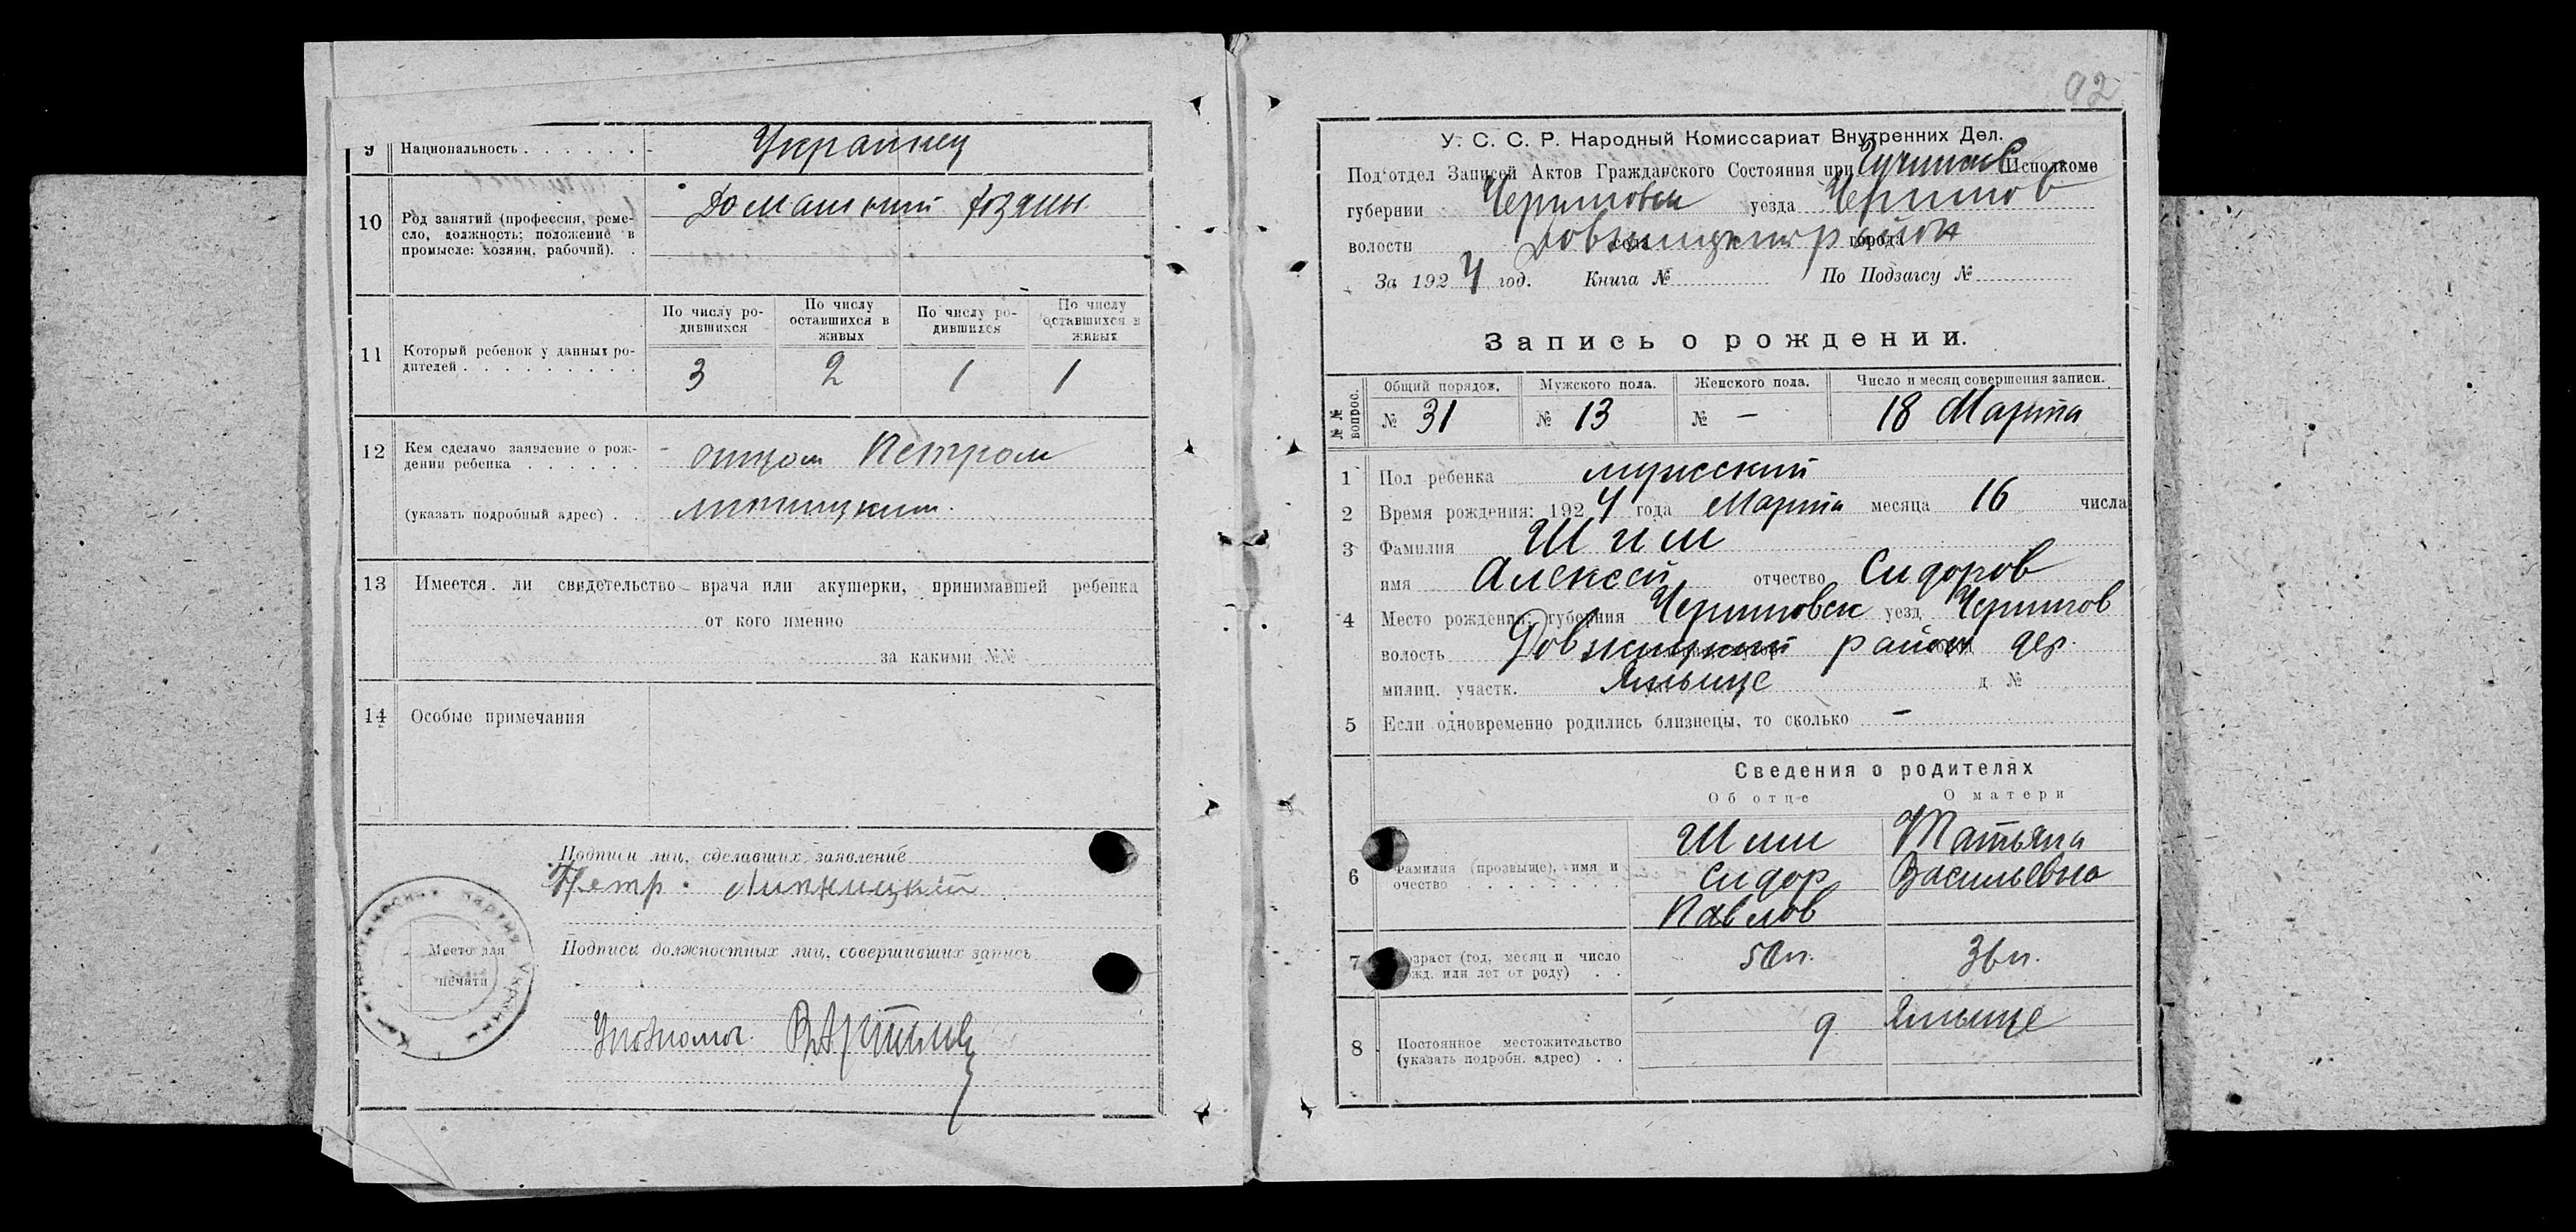 9 Национальность Украинец
10 Род занятий (профессия, реме-
сло, должность; положение в
промысле: хозяин, рабочий).
Домашний хозяин
11 Который ребенок у данных ро-
дителей
По числу ро-
дившихся
По числу
оставшихся в
живых
По числу ро-
дившихся
По числу
оставшихся в
живых
3 2 1 1
12 Кем сделано заявление о рож-
дении ребенка
отцом Петром
(указать подробный адрес)
Липницким.
13 Имеется ли свидетельство врача или акушерки, принимавшей ребенка
от кого именно
за какими №№
14 Особые примечания
Подписи лиц, сделавших заявление
Петр Липницкий
Место для
печати
Подписи должностных лиц, совершивших запись
Уполномоч.
92
У. С. С. Р. Народный Комиссариат Внутренних Дел.
Под'отдел Записей Актов Гражданского Состояния при Исполкоме
губернии Черниговск уезда Чернигов
волости села Довжицкий район города
За 1924 год. Книга № По Подзагсу №
Запись о рождении.
№ № вопрос.
Общий порядок. Мужского пола. Женского пола. Число и месяц совершения записи.
№ 31 № 13 № — 18 Марта
1 Пол ребенка мужский
2 Время рождения: 1924 года Марта месяца 16 числа
3 Фамилия Шим
имя Алексей отчество Сидоров
4 Место рождения: губерния Черниговск уезд Чернигов
волость Довжицкий район дер.
милиц. участк. д №
5 Если одновременно родились близнецы, то сколько —
Сведения о родителях
Об отце О матери
6 Фамилия (прозвище), имя и
очество
Шим
Сидор
Павлов
Татьяна
Васильевна
7 Возраст (год, месяц и число
рожд. или лет от роду)
50л. 36л.
8 Постоянное местожительство
(указать подробн. адрес)
д.